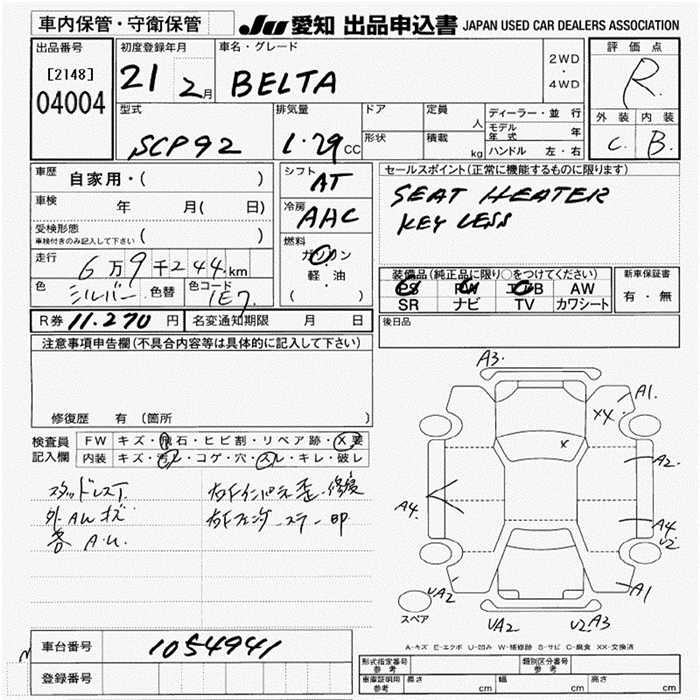 車内保管・守衛保管 JU 愛知 出品申込書 JAPAN USED CAR DEALERS ASSOCIATION
出品番号 初度登録年月 車名・グレード 2WD・4WD 評価点
[2148] 04004 21 2月 BELTA R
型式 排気量 ドア 定員 人 ディーラー・並行 外装 内装
SCP92 1.29CC 形状 積載 kg モデル年式 年 C B
ハンドル 左・右
車歴 自家用・( ) シフト AT セールスポイント(正常に機能するものに限ります)
車検 年 月( 日) 冷房 AHC SEAT HEATER
受検形態 車検付きのみ記入して下さい ( ) KEY LESS
走行 6万9千244km 燃料 ガソリン・軽・油 ( )
色 シルバー 色替 色コード 1E7
装備品(純正品に限り○をつけてください) 新車保証書
PS PW エアB AW 有・無
SR ナビ TV カワシート
R券 11.270円 名変通知期限 月 日 後日品
注意事項申告欄(不具合内容等は具体的に記入して下さい)
修復歴 有(箇所 )
検査員記入欄 FW キズ・飛石・ヒビ割・リペア跡・X要
内装 キズ・汚レ・コゲ・穴・スレ・キレ・破レ
スタッドレスT. 右Fインパネ歪・修復
外AWキズ 右Fフェンダーステー凹
各A.U.
A3
A1
XX
X
A2
A4
A4
U2
UA2
A1
スペア
UA2 U2 A3
A-キズ E-エクボ U-凹み W-補修跡 S-サビ C-腐食 XX-交換済
車台番号 1054941
登録番号
形式指定番号 参考 類別区分番号 参考
車庫証明用 参考 長さ cm 幅 cm 高さ cm